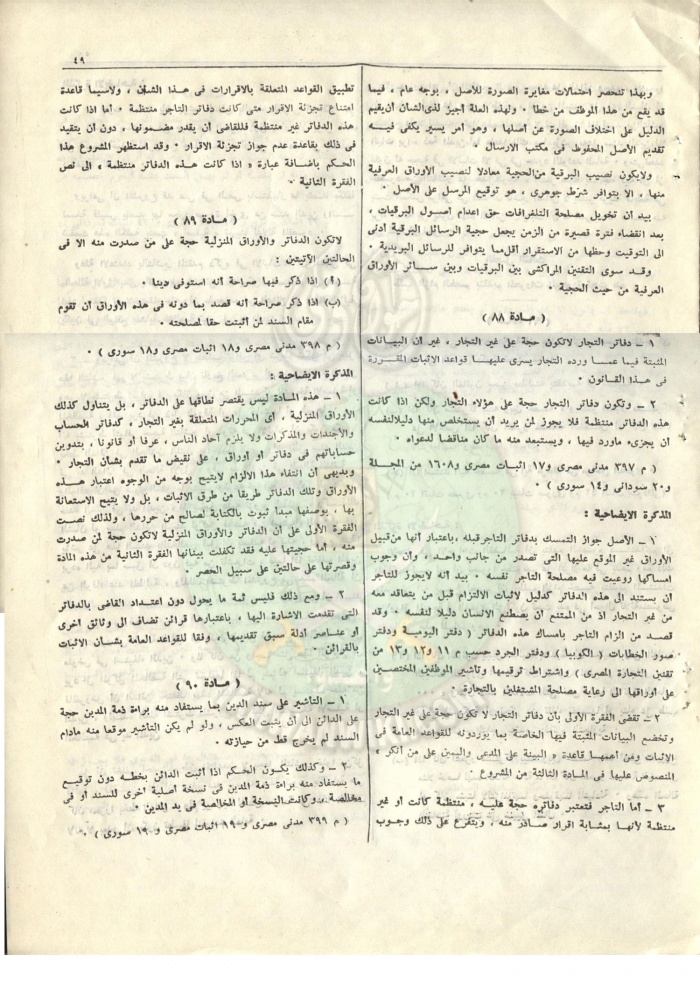 ٤٩
وبهذا تنحصر احتمالات مغايرة الصورة للأصل ، بوجه عام ، فيما
قد يقع من هذا الموظف من خطأ ٠ ولهذه العلة أجيز لذى الشأن أن يقيم
الدليل على اختلاف الصورة عن أصلها ، وهو أمر يسير يكفى فيه
تقديم الأصل المحفوظ فى مكتب الارسال ٠
ولا يكون نصيب البرقية من الحجية معادلا لنصيب الأوراق العرفية
منها ، الا بتوافر شرط جوهرى ، هو توقيع المرسل على الأصل ٠
بيد أن تخويل مصلحة التلغرافات حق اعدام أصول البرقيات ،
بعد انقضاء فترة قصيرة من الزمن يجعل حجية الرسائل البرقية أدنى
الى التوقيت وحظها من الاستقرار أقل مما يتوافر للرسائل البريدية ٠
وقد سوى التقنين المراكشى بين البرقيات وبين سائر الأوراق
العرفية من حيث الحجية ٠
( مادة ٨٨ )
١ ــ دفاتر التجار لاتكون حجة على غير التجار ، غير أن البيانات
المثبتة فيها عما ورده التجار يسرى عليها قواعد الاثبات المقررة
فى هذا القانون ٠
٢ ــ وتكون دفاتر التجار حجة على هؤلاء التجار ولكن اذا كانت
هذه الدفاتر منتظمة فلا يجوز لمن يريد أن يستخلص منها دليلا لنفسه
أن يجزىء ماورد فيها ، ويستبعد منه ما كان مناقضا لدعواه ٠
( م ٣٩٧ مدنى مصرى و١٧ اثبات مصرى و١٦٠٨ من المجلة
و٢٠ سودانى و١٤ سورى ) ٠
المذكرة الايضاحية :
١ ــ الأصل جواز التمسك بدفاتر التاجر قبله ، باعتبار أنها من قبيل
الأوراق غير الموقع عليها التى تصدر من جانب واحد ، وان وجوب
امساكها روعيت فيه مصلحة التاجر نفسه ٠ بيد أنه لايجوز للتاجر
أن يستند الى هذه الدفاتر كدليل لاثبات الالتزام قبل من يتعاقد معه
من غير التجار اذ من الممتنع أن يصطنع الانسان دليلا لنفسه ٠ وقد
قصد من الزام التاجر بامساك هذه الدفاتر ( دفتر اليومية ودفتر
صور الخطابات ( الكوبيا ) ودفتر الجرد حسب م ١١ و١٢ و١٣ من
تقنين التجارة المصرى ) واشتراط ترقيمها وتأشير الموظفين المختصين
على أوراقها الى رعاية مصلحة المشتغلين بالتجارة ٠
٢ ــ تقضى الفقرة الأولى بأن دفاتر التجار لا تكون حجة على غير التجار
وتخضع البيانات المثبتة فيها الخاصة بما يوردونه للقواعد العامة فى
الاثبات ومن أهمها قاعدة « البينة على المدعى واليمين على من أنكر »
المنصوص عليها فى المادة الثالثة من المشروع ٠
٣ ــ أما التاجر فتعتبر دفاتره حجة عليه ، منتظمة كانت أو غير
منتظمة لأنها بمثابة اقرار صادر منه ، ويتفرع على ذلك وجوب
تطبيق القواعد المتعلقة بالاقرارات فى هذا الشأن ، ولاسيما قاعدة
امتناع تجزئة الاقرار متى كانت دفاتر التاجر منتظمة ٠ أما اذا كانت
هذه الدفاتر غير منتظمة فللقاضى أن يقدر مضمونها ، دون أن يتقيد
فى ذلك بقاعدة عدم جواز تجزئة الاقرار ٠ وقد استظهر المشروع هذا
الحكم باضافة عبارة « اذا كانت هذه الدفاتر منتظمة » الى نص
الفقرة الثانية ٠
( مادة ٨٩ )
لاتكون الدفاتر والأوراق المنزلية حجة على من صدرت منه الا فى
الحالتين الآتيتين :
(أ) اذا ذكر فيها صراحة أنه استوفى دينا ٠
(ب) اذا ذكر صراحة أنه قصد بما دونه فى هذه الأوراق أن تقوم
مقام السند لمن أثبتت حقا لصلحته ٠
( م ٣٩٨ مدنى مصرى و١٨ اثبات مصرى و١٨ سورى ) ٠
المذكرة الايضاحية :
١ ــ هذه المادة ليس يقتصر نطاقها على الدفاتر ، بل يتناول كذلك
الأوراق المنزلية ، أى المحررات المتعلقة بغير التجار ، كدفاتر الحساب
والأجندات والمذكرات ولا يلزم آحاد الناس ، عرفا أو قانونا ، بتدوين
حساباتهم فى دفاتر أو أوراق ، على نقيض ما تقدم بشأن التجار ٠
وبديهى أن انتفاء هذا الالزام لايتيح بوجه من الوجوه اعتبار هذه
الأوراق وتلك الدفاتر طريقا من طرق الاثبات ، بل ولا يتيح الاستعانة
بها ، بوصفها مبدأ ثبوت بالكتابة لصالح من حررها ، ولذلك نصت
الفقرة الأولى على أن الدفاتر والأوراق المنزلية لاتكون حجة لمن صدرت
منه ، أما حجيتها عليه فقد تكفلت ببيانها الفقرة الثانية من هذه المادة
وقصرتها على حالتين على سبيل الحصر ٠
٢ ــ ومع ذلك فليس ثمة ما يحول دون اعتداد القاضى بالدفاتر
التى تقدمت الاشارة اليها ، باعتبارها قرائن تضاف الى وثائق أخرى
أو عناصر أدلة سبق تقديمها ، وفقا للقواعد العامة بشأن الاثبات
بالقرائن ٠
( مادة ٩٠ )
١ ــ التأشير على سند الدين بما يستفاد منه براءة ذمة المدين حجة
على الدائن الى أن يثبت العكس ، ولو لم يكن التأشير موقعا منه مادام
السند لم يخرج قط من حيازته ٠
٢ ــ وكذلك يكون الحكم اذا أثبت الدائن بخطه دون توقيع
ما يستفاد منه براءة ذمة المدين فى نسخة أصلية أخرى للسند أو فى
مخالصة ، وكانت النسخة أو المخالصة فى يد المدين ٠
( م ٣٩٩ مدنى مصرى و ١٩ اثبات مصرى و ١٩ سورى ) ٠